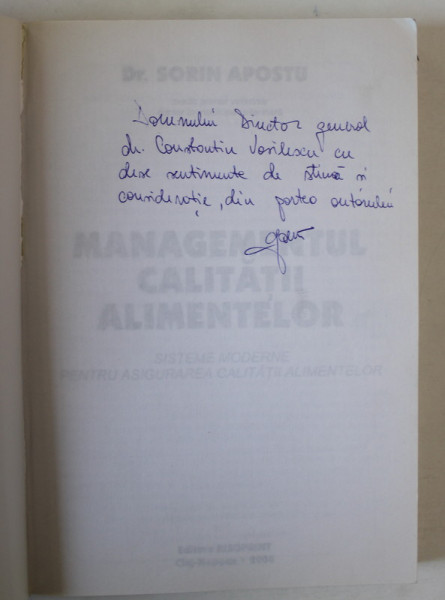 Dr. SORIN APOSTU
Domnului Director general
dr. Constantin Vasilescu cu
alese sentimente de stimă și
considerație, din partea autorului
MANAGEMENTUL
CALITĂȚII
ALIMENTELOR
SISTEME MODERNE
PENTRU ASIGURAREA CALITĂȚII ALIMENTELOR
Editura RISOPRINT
Cluj-Napoca